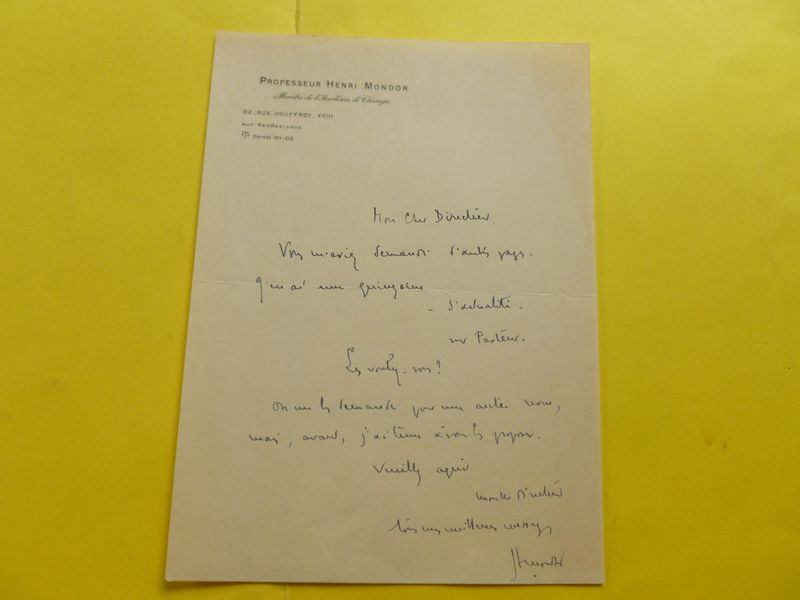 PROFESSEUR HENRI MONDOR
Membre de l'Académie de Chirurgie
92, RUE JOUFFROY, XVIII
sur Rendez-vous
Carnot 01-03
Mon Cher Directeur.
Vous m'aviez demandé d'autres pages.
J'en ai une quinzaine
- d'actualité -
sur Pasteur.
Les voulez-vous?
On me les demande pour une autre revue,
mais, avant, j'ai tenu à vous les proposer.
Veuillez agréer
mon cher Directeur
tous mes meilleurs messages
HMondor